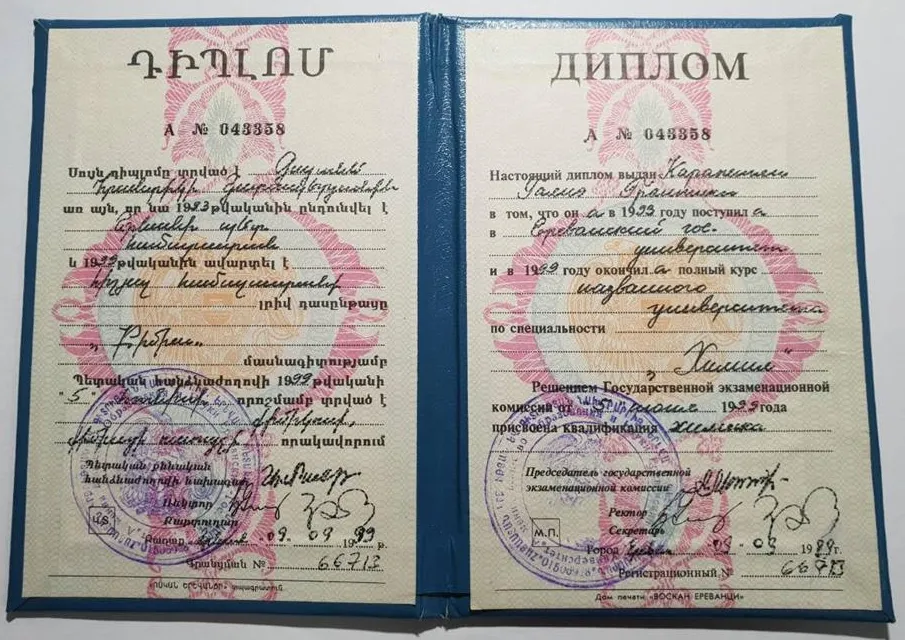 ԴԻՊԼՈՄ
А № 043358
Սույն դիպլոմը տրված է
առ այն, որ նա 1993 թվականին ընդունվել է
Երևանի պետ.
համալսարան
և 1999 թվականին ավարտել է
նշյալ համալսարանի
լրիվ դասընթացը
„Քիմիա“
մասնագիտությամբ
Պետական հանձնաժողովի 1999 թվականի
"5" հունիսի որոշմամբ տրված է
քիմիկոսի,
որակավորում
Պետական քննական
հանձնաժողովի նախագահ
Ռեկտոր
Քարտուղար
Կ.Տ.
Քաղաք Երևան 09 09 1999 թ.
Գրանցման № 66713
«ՈՍԿԱՆ ԵՐԵՎԱՆՑԻ» տպագրատուն
ДИПЛОМ
А № 043358
Настоящий диплом выдан
Гаянэ
в том, что он а в 1993 году поступил а
в Ереванский гос.
университет
и в 1999 году окончил а полный курс
названного
университета
по специальности
„Химия“
Решением Государственной экзаменационной
комиссии от 5 1999 года
присвоена квалификация химика
Председатель государственной
экзаменационной комиссии
Ректор
Секретарь
М.П.
Город Ереван 09 09 1999 г.
Регистрационный № 66713
Дом печати «ВОСКАН ЕРЕВАНЦИ»